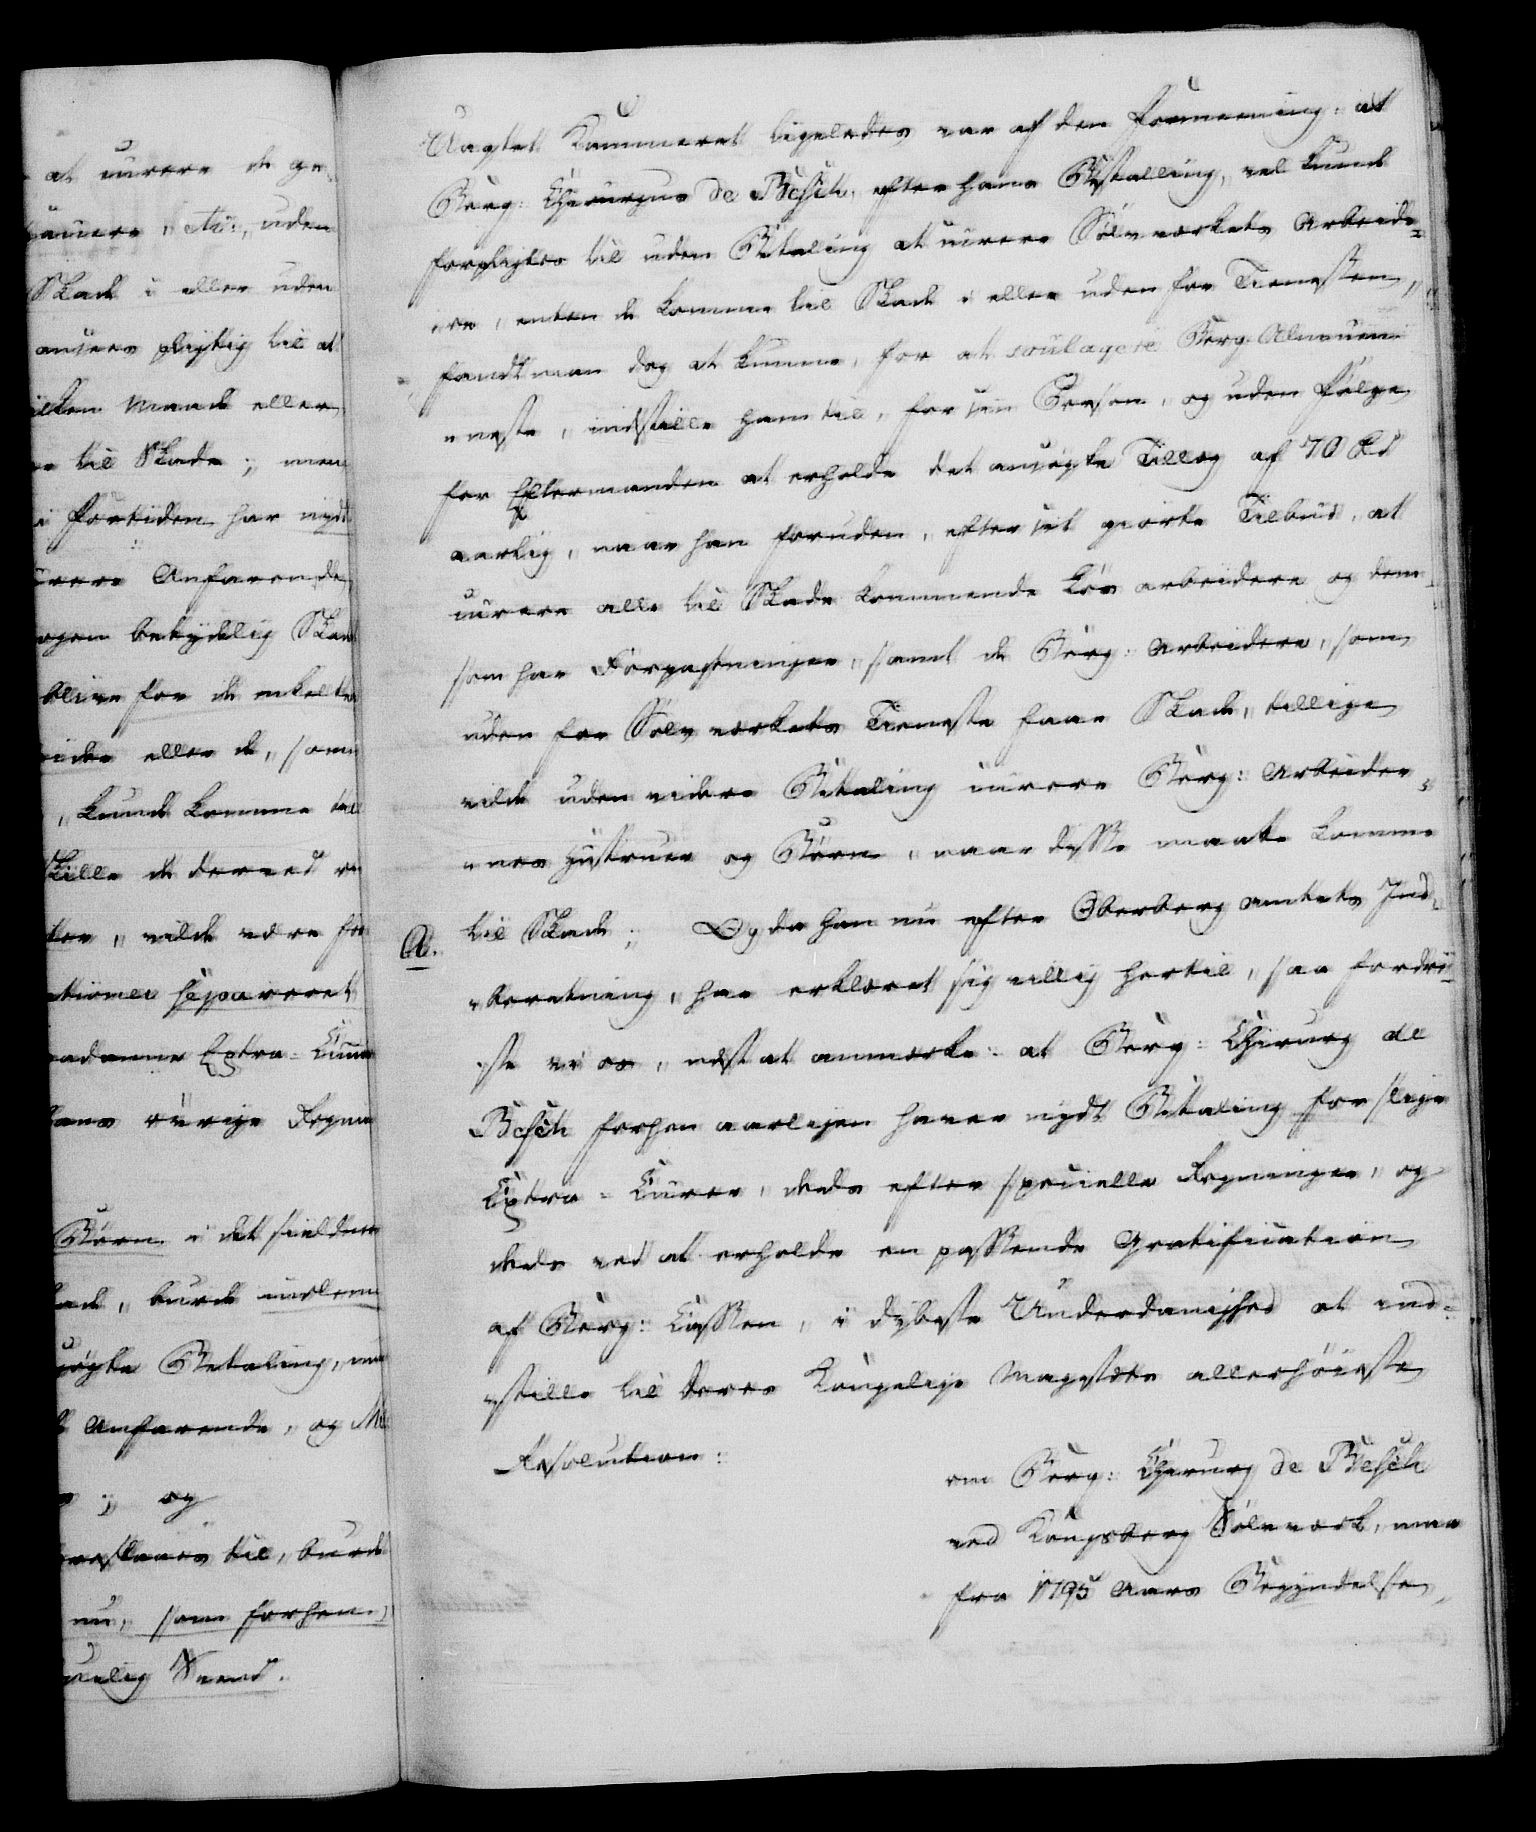 at curere de ge-
etc:, uden
Skade i eller uden
ansees pligtig til at
Maade eller
til Skade; men
i Fortiden har nydt
Anfarende
betydelig Skade
blive for de enkelte
eller de, som
, kunde komme til
de derved
, vilde være for
separeret
Extra-Cuurer
øvrige Regnin
Børn i det sieldne
, burde
Betaling,
Anfarende, og
; og
til, burde
nu, som forhen,

Uagtet Kammeret ligeledes var af den Formeening: at
Berg: Chirurgus de Besche, efter hans Bestalling, vel kunde
forpligtes til uden Betaling at curere Sølvværkets Arbeide-
ere, enten de komme til Skade i eller uden for Tienesten,
fandt man dog at kunne, for at soulagere Berg-Almuen
neste, indstille ham til, for sin Person, og uden Følge
for Eftermanden at erholde det ansøgte Tillæg af 70 Rd
aarlig, naar han foruden, efter sit giorte Tilbud, at
curere alle til Skade kommende Løsarbeidere og dem
som har Forpagtninger, samt de Berg-Arbeidere, som
uden for Sølvværkets Tieneste faar Skade, tillige
vilde uden videre Betaling curere Berg: Arbeider-
nes Hustruer og Børn, naar disse maatte komme
A. til Skade; Og da han nu efter Oberberg amtets Ind-
beretning, har erklæret sig villig hertil, saa fordri-
ste vi os, næst at anmærke: at Berg: Chirurg de
Besche forhen aarligen haver nydt Betaling for slige
Extra-Curer, deels efter specielle Regninger, og
deels ved at erholde en passende Gratification
af Berg: Cassen, i dybeste Underdanighed at ind-
stille til Deres Kongelige Majestæts allerhøieste
Resolution:
om Berg: Chirurg de Besche
ved Kongsberg Sølvværk, maa
fra 1795 Aars Begyndelse,